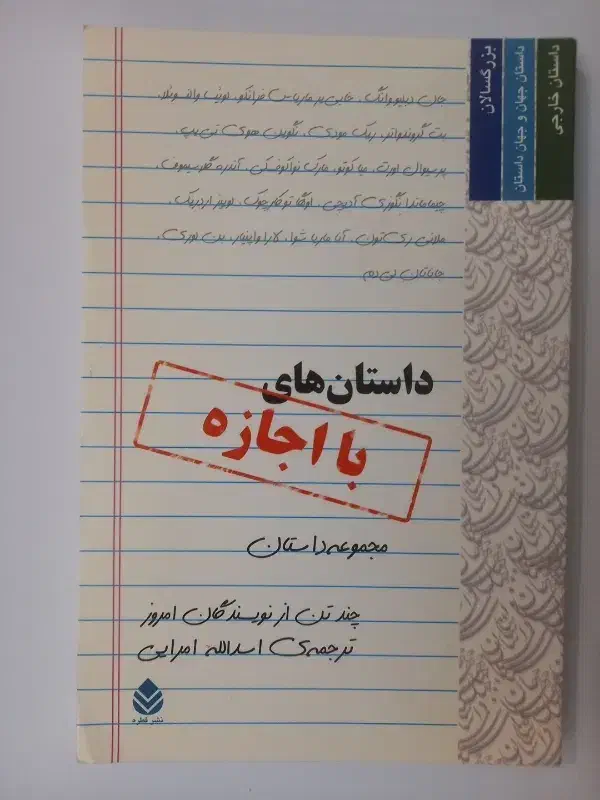 داستان خارجی
داستان جهان و جهان داستان
بزرگسالان
جان دیویوانگ، خابی‌یر ماریاس فرانکو، لوئیس والنزوئلا،
بت گروندواتر، ریک مودی، نگوین هوی تی‌یپ،
پرسیوال اورت، میا کوتو، مارک نواکوفسکی، آندره گلرسیموف،
چیماماندا نگوزی آدیچی، اولگا توکارچوک، لوییز اردریک،
ملانی ری‌تون، آنا ماریا شوا، کلارا واپنیار، بن لوری،
جاناتان لی‌دم
داستان‌های
با اجازه
مجموعه داستان
چند تن از نویسندگان امروز
ترجمه‌ی اسدالله امرایی
نشر قطره